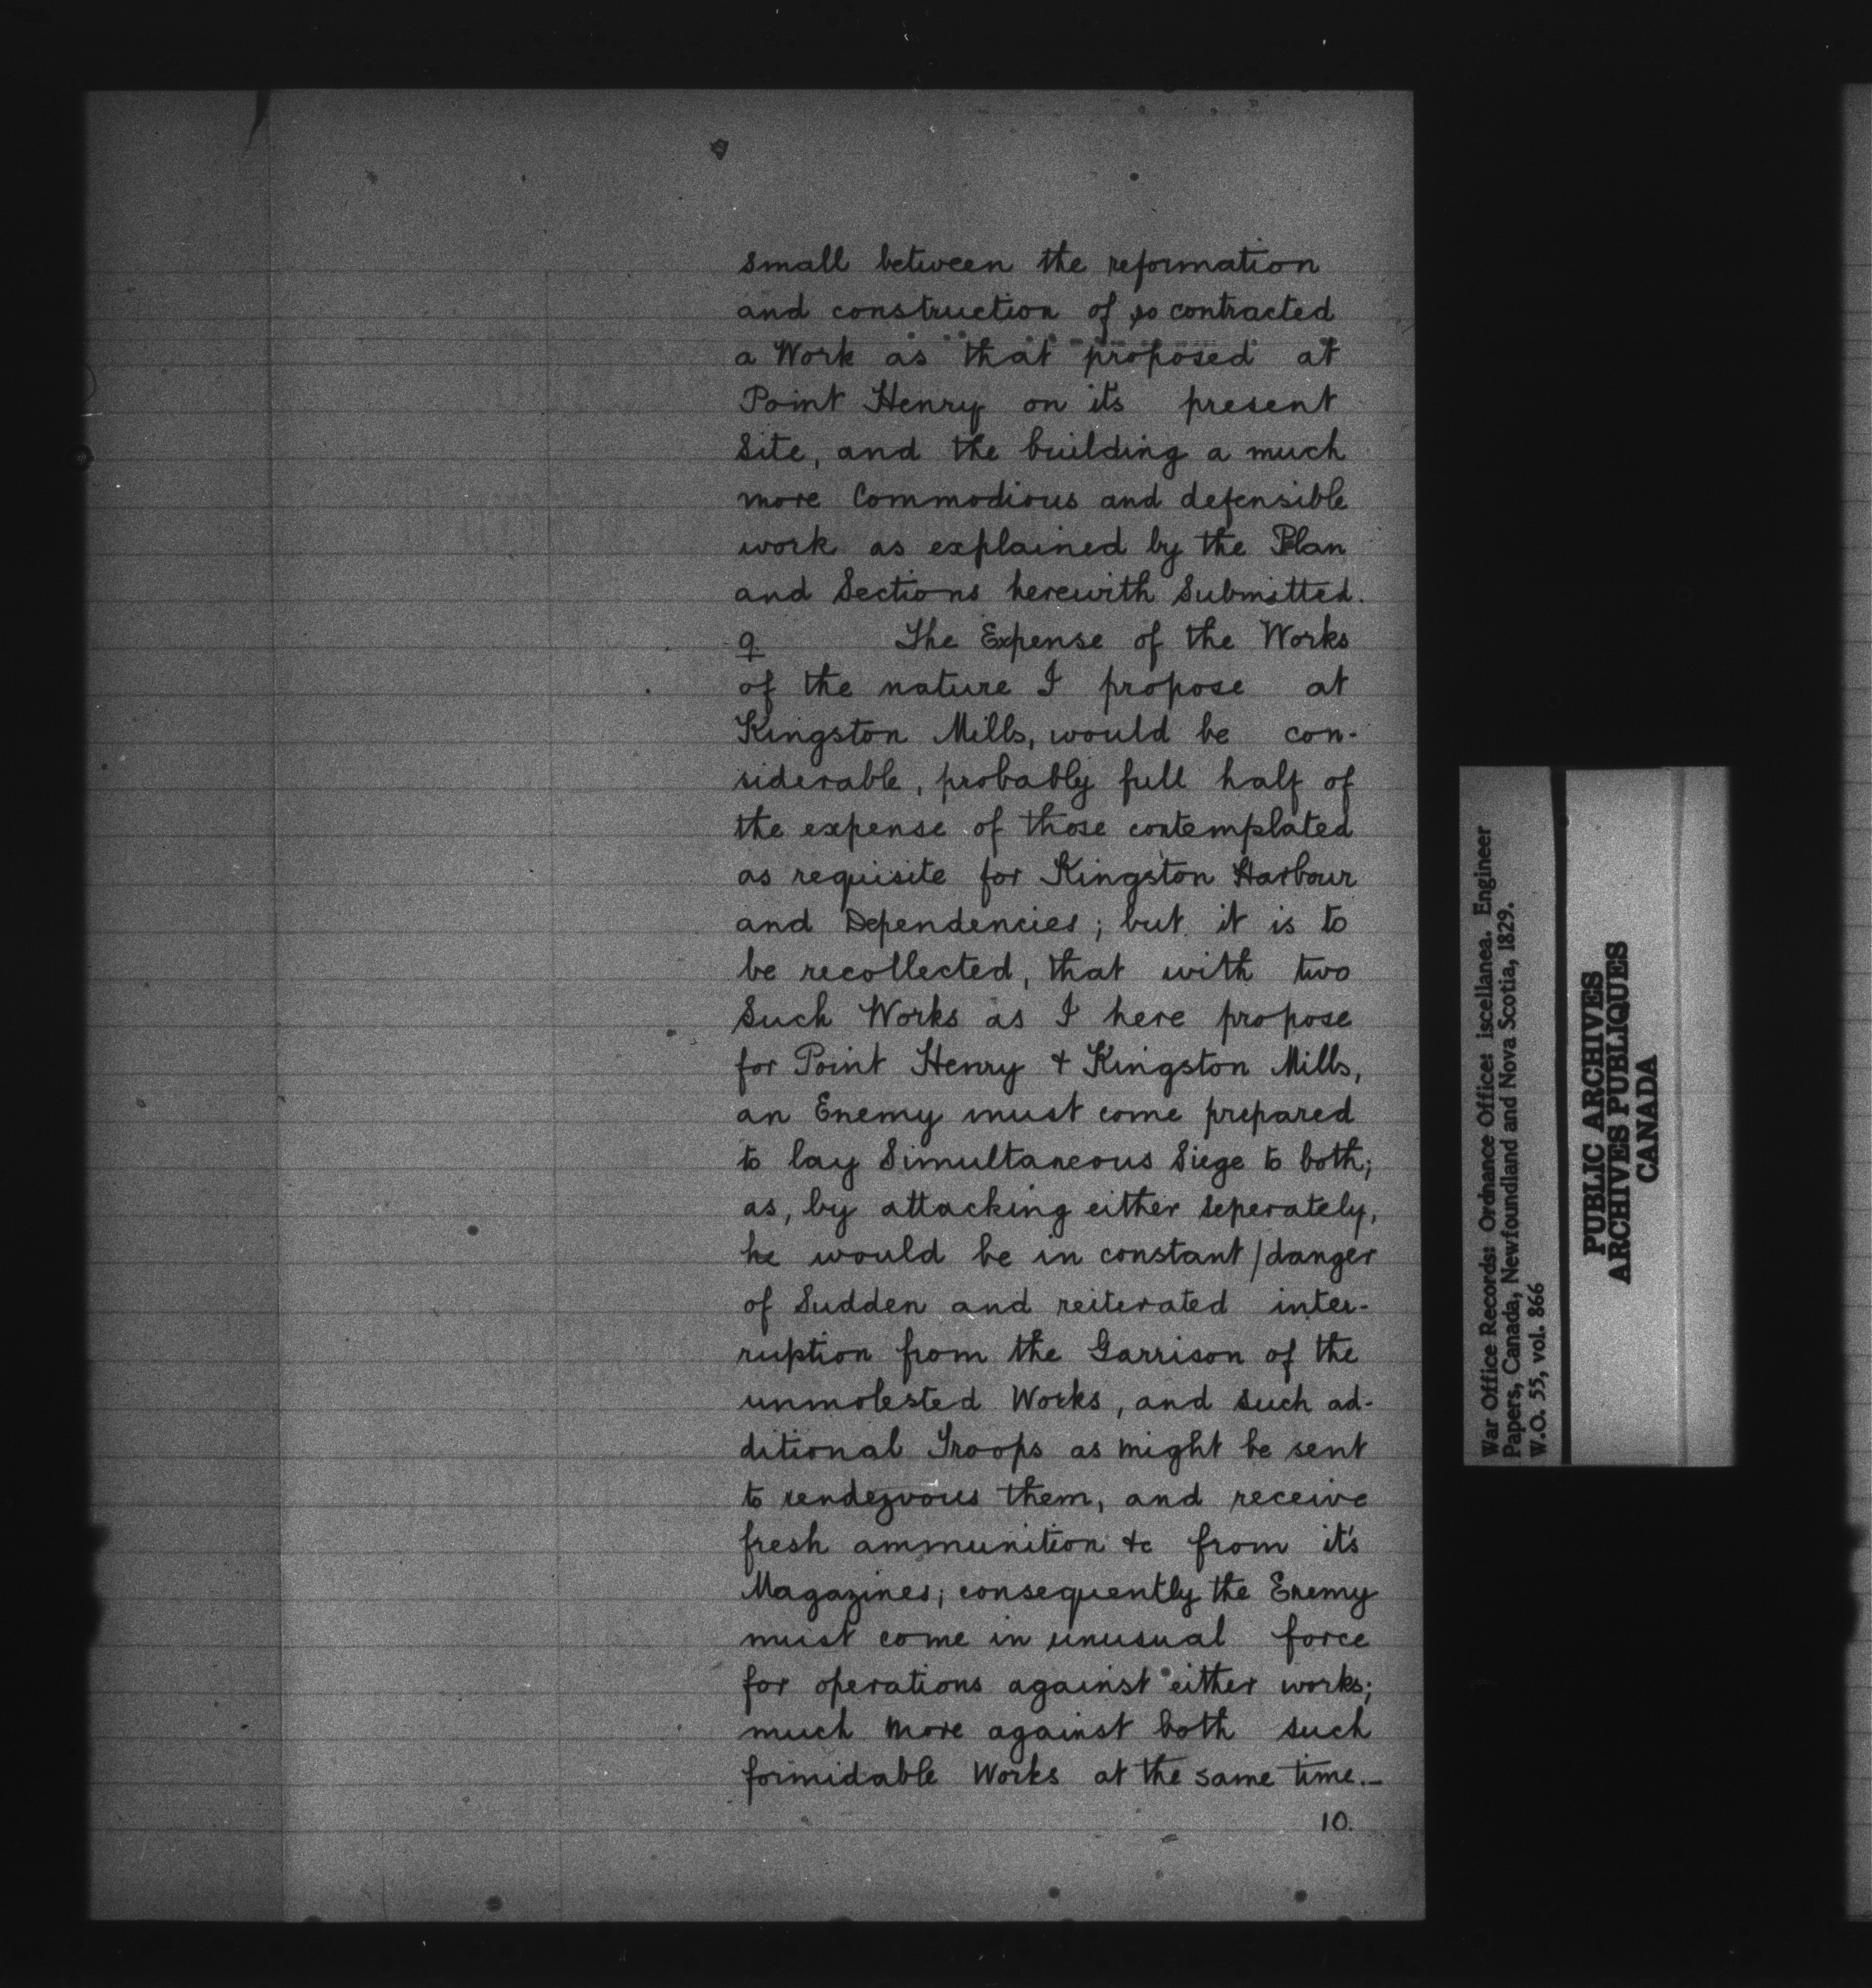 small between the reformation
and construction of so contracted
a Work as that proposed at
Point Henry on it's present
Site, and the building a much
more Commodious and defensible
work as explained by the Plan
and Sections herewith Submitted.
9 The Expense of the Works
of the nature I propose at
Kingston Mills, would be con-
siderable, probably full half of
the expense of those contemplated
as requisite for Kingston Harbour
and Dependencies; but it is to
be recollected, that with two
Such Works as I here propose
for Point Henry & Kingston Mills,
an Enemy must come prepared
to lay Simultaneous Siege to both;
as, by attacking either seperately,
he would be in constant/danger
of Sudden and reiterated inter-
ruption from the Garrison of the
unmolested Works, and such ad-
ditional Troops as might be sent
to rendezvous them, and receive
fresh ammunition &c from it's
Magazines; consequently the Enemy
must come in unusual force
for operations against either works;
much more against both such
formidable Works at the same time.-
10.
War Office Records: Ordnance Office: iscellanea. Engineer
Papers, Canada, Newfoundland and Nova Scotia, 1829.
W.O. 55, vol. 866
PUBLIC ARCHIVES
ARCHIVES PUBLIQUES
CANADA